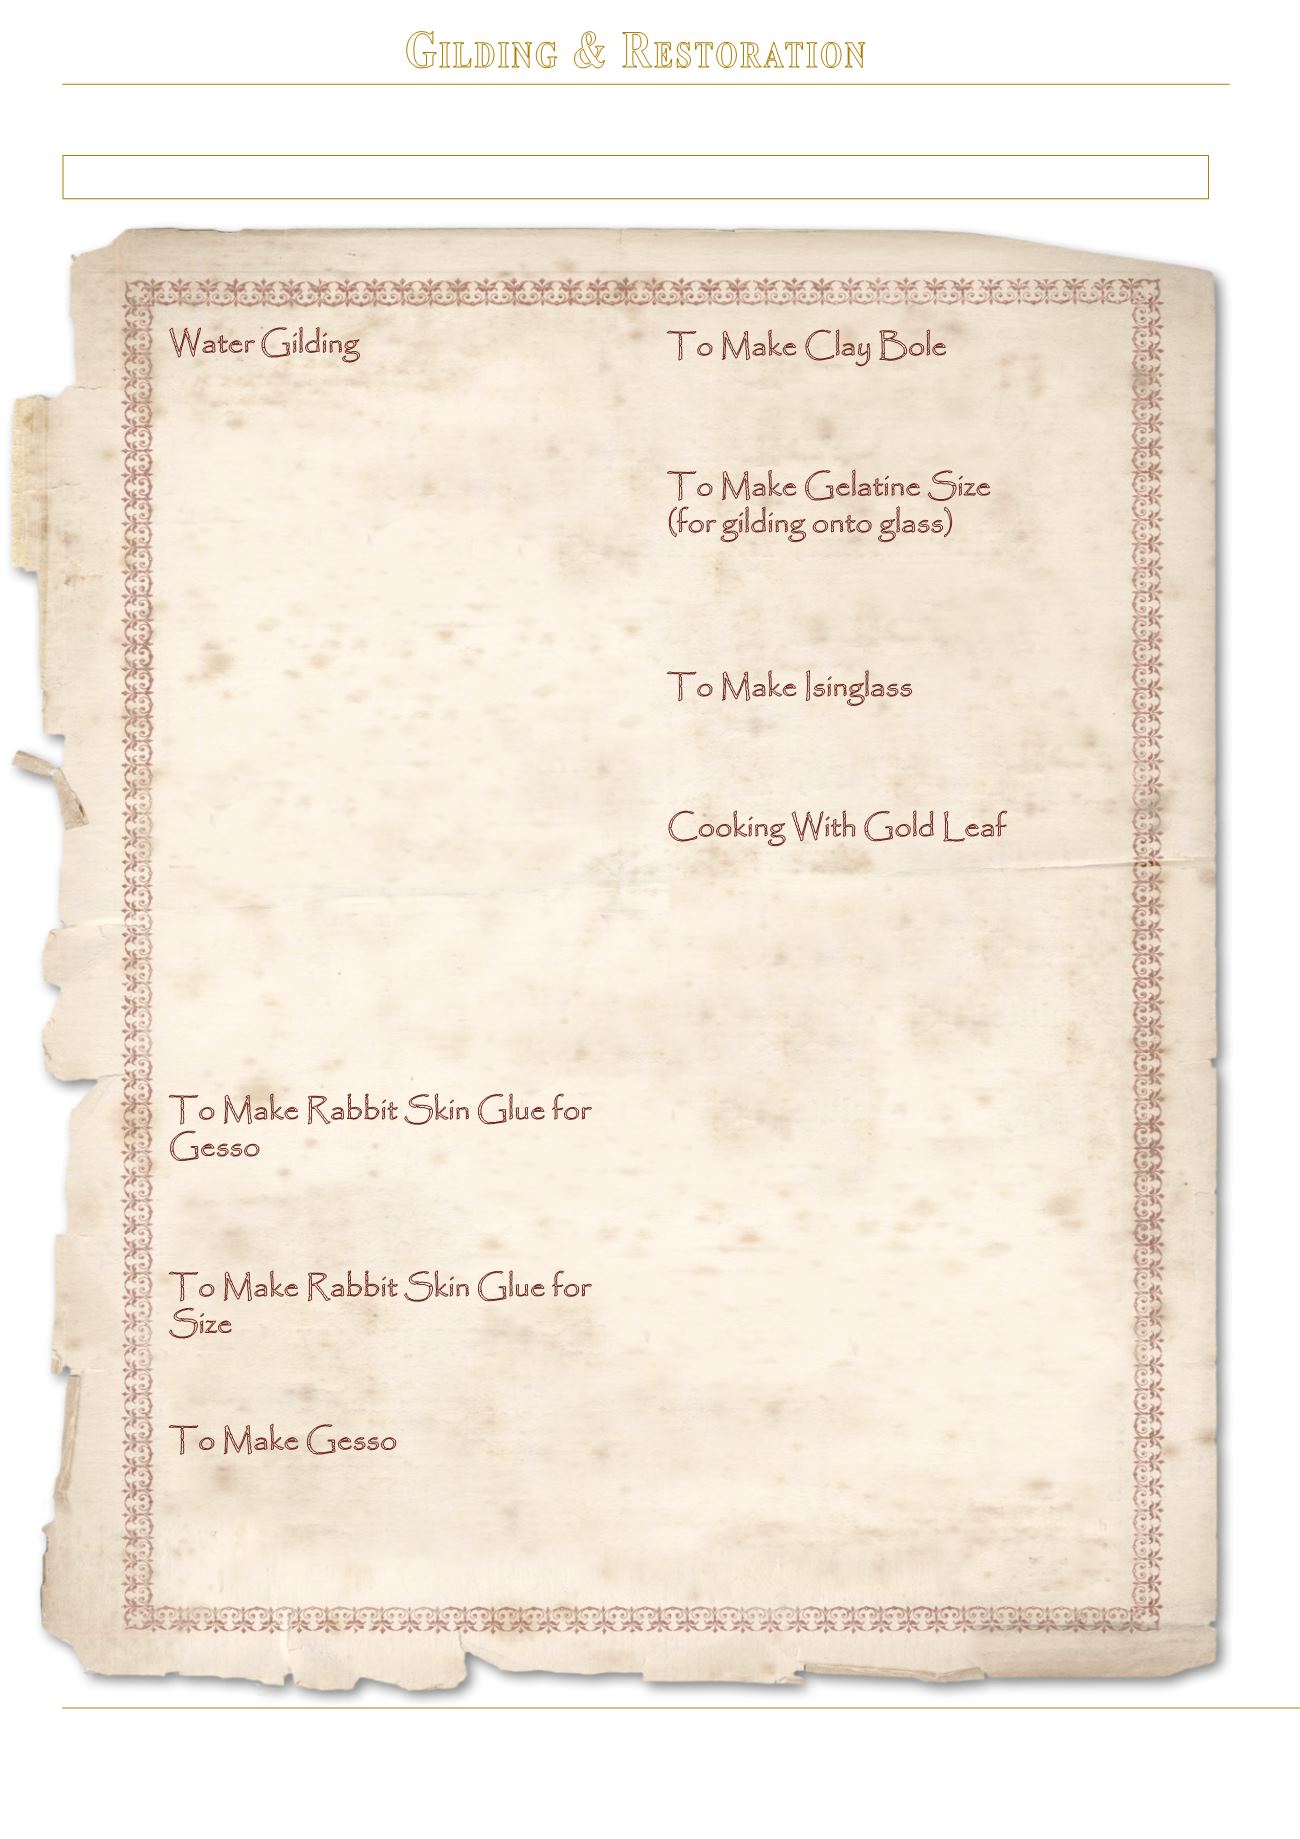 Gilding & Restoration
Water Gilding
To Make Rabbit Skin Glue for
Gesso
To Make Rabbit Skin Glue for
Size
To Make Gesso
To Make Clay Bole
To Make Gelatine Size
(for gilding onto glass)
To Make Isinglass
Cooking With Gold Leaf